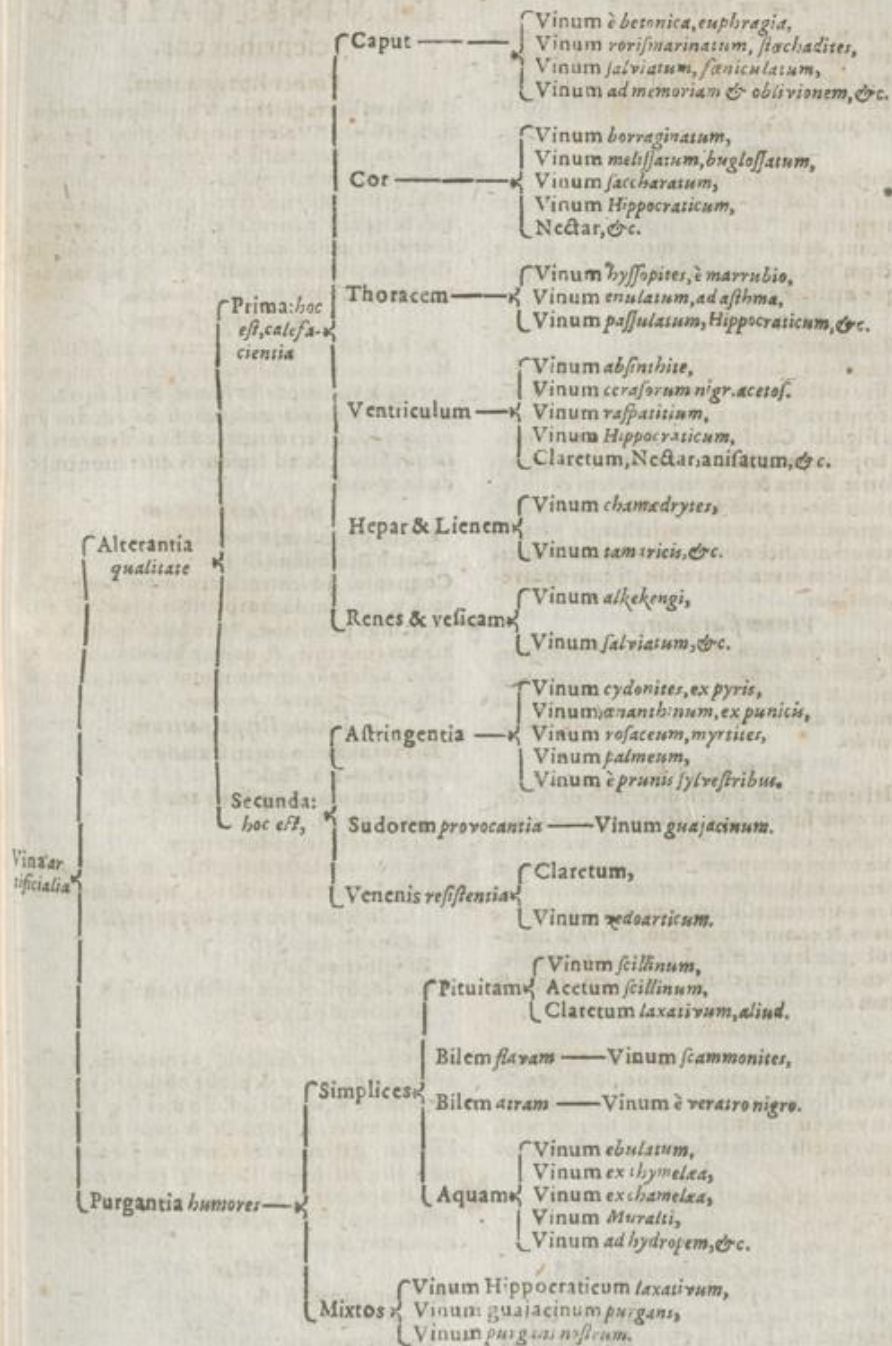 Caput
Vinum è betonica, euphragia,
Vinum rorismarinatum, stœchadites,
Vinum salviatum, fœniculatum,
Vinum ad memoriam & oblivionem, &c.
Cor
Vinum borraginatum,
Vinum melissatum, buglossatum,
Vinum saccharatum,
Vinum Hippocraticum,
Nectar, &c.
Prima: hoc
est, calefa-
cientia
Thoracem
Vinum hyssopites, è marrubio,
Vinum enulatum, ad asthma,
Vinum passulatum, Hippocraticum, &c.
Ventriculum
Vinum absinthite,
Vinum cerasorum nigr. acetos.
Vinum raspatitium,
Vinum Hippocraticum,
Claretum, Nectar, anisatum, &c.
Alterantia
qualitate
Hepar & Lienem
Vinum chamædrytes,
Vinum tamaricis, &c.
Renes & vesicam
Vinum alkekengi,
Vinum salviatum, &c.
Astringentia
Vinum cydonites, ex pyris,
Vinum œnanthinum, ex punicis,
Vinum rosaceum, myrtites,
Vinum palmeum,
Vinum è prunis sylvestribus.
Secunda:
hoc est,
Sudorem provocantia
Vinum guajacinum.
Vina ar
tificialia
Venenis resistentia
Claretum,
Vinum zedoarticum.
Pituitam
Vinum scillinum,
Acetum scillinum,
Claretum laxativum, aliud.
Simplices
Bilem flavam
Vinum scammonites,
Bilem atram
Vinum è veratro nigro.
Purgantia humores
Aquam
Vinum ebulatum,
Vinum ex thymelæa,
Vinum ex chamelæa,
Vinum Muralti,
Vinum ad hydropem, &c.
Mixtos
Vinum Hippocraticum laxativum,
Vinum guajacinum purgans,
Vinum purgans nostrum.